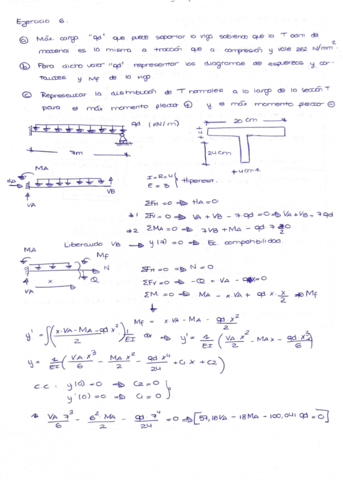 Ejercicio 6.
ⓐ Máx carga "qd" que puede soportar la viga sabiendo que la T adm de
es la misma a tracción que a compresión y vale 282 N/mm²
ⓑ Para dicho valor "qd" representar los diagramas de esfuerzos
cortantes y Mf de la viga
ⓒ Representar la distribución de T normales a lo largo de la sección T
para el máx momento flector ⊕ y el máx momento flector ⊖
qd (kN/m)
20 cm
7m
24cm
4cm
MA
VA
VB
I = R = 4
E = 3
Hiperest.
ΣFH = 0 ⇒ HA = 0
*1 ΣFV = 0 ⇒ VA + VB - 7qd = 0 ⇒ VA + VB = 7qd
*2 ΣMA = 0 ⇒ 7VB + MA - qd 7²/2 = 0
Liberando VB ⇒ y(7) = 0 ⇒ Ec. compatibilidad.
MA
Mf
N
Q
VA
x
ΣFH = 0 ⇒ N = 0
ΣFV = 0 ⇒ -Q + VA - qd x = 0
ΣM = 0 ⇒ MA - x VA + qd x · x/2 + Mf
Mf = x VA - MA - qd x²/2
y' = ∫(x·VA - MA - qd x²/2) 1/EI dx ⇒ y' = 1/EI (VA x²/2 - MA x - qd x³/6)
y = 1/EI (VA x³/6 - MA x²/2 - qd x⁴/24 + C1 x + C2)
c.c: y(0) = 0 ⇒ C2 = 0
y'(0) = 0 ⇒ C1 = 0
VA 7³/6 - 6² MA/2 - qd 7⁴/24 = 0 ⇒ [57,16 VA - 18 MA - 100,041 qd = 0]